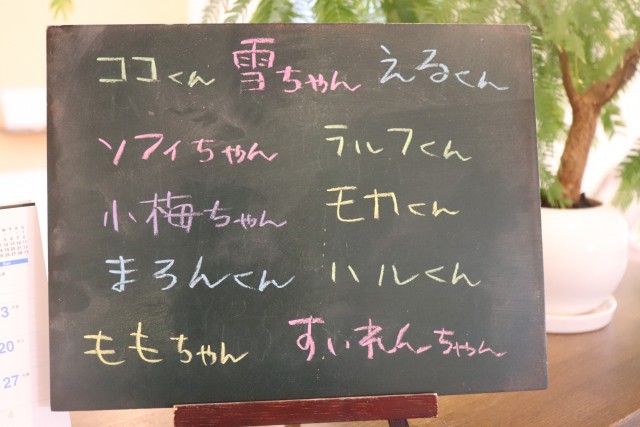 ココくん 雪ちゃん えるくん
ソフィちゃん ラルフくん
小梅ちゃん モカくん
まろんくん ハルくん
ももちゃん すいれんちゃん
3
20
27